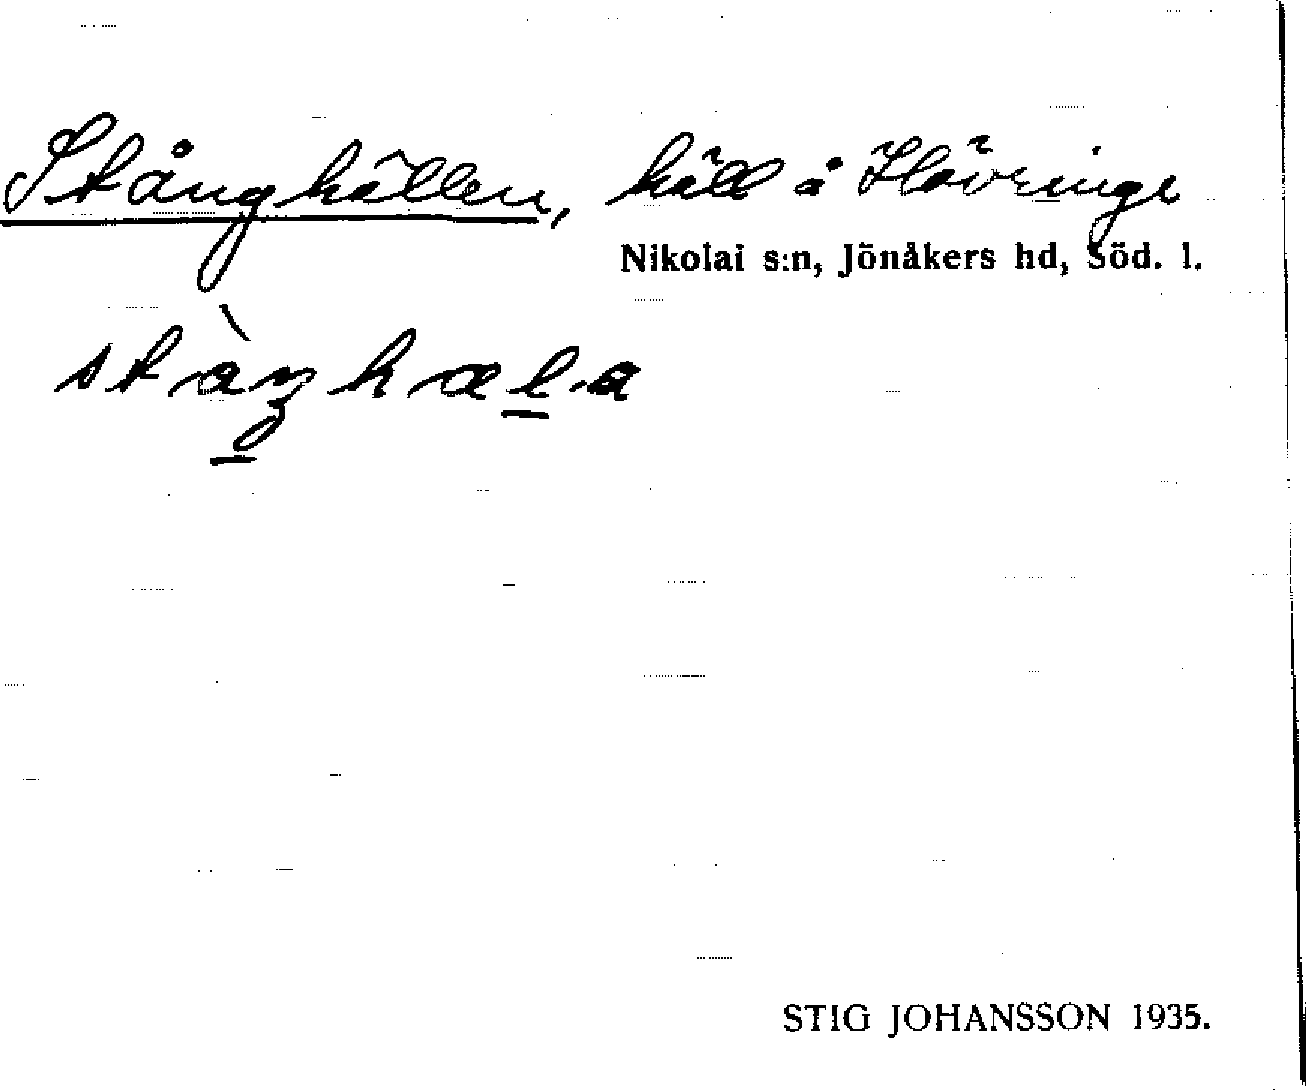 Stånghällen, häll å Hävringe
Nikolai s:n, Jönåkers hd, Söd. l.
STIG JOHANSSON 1935.